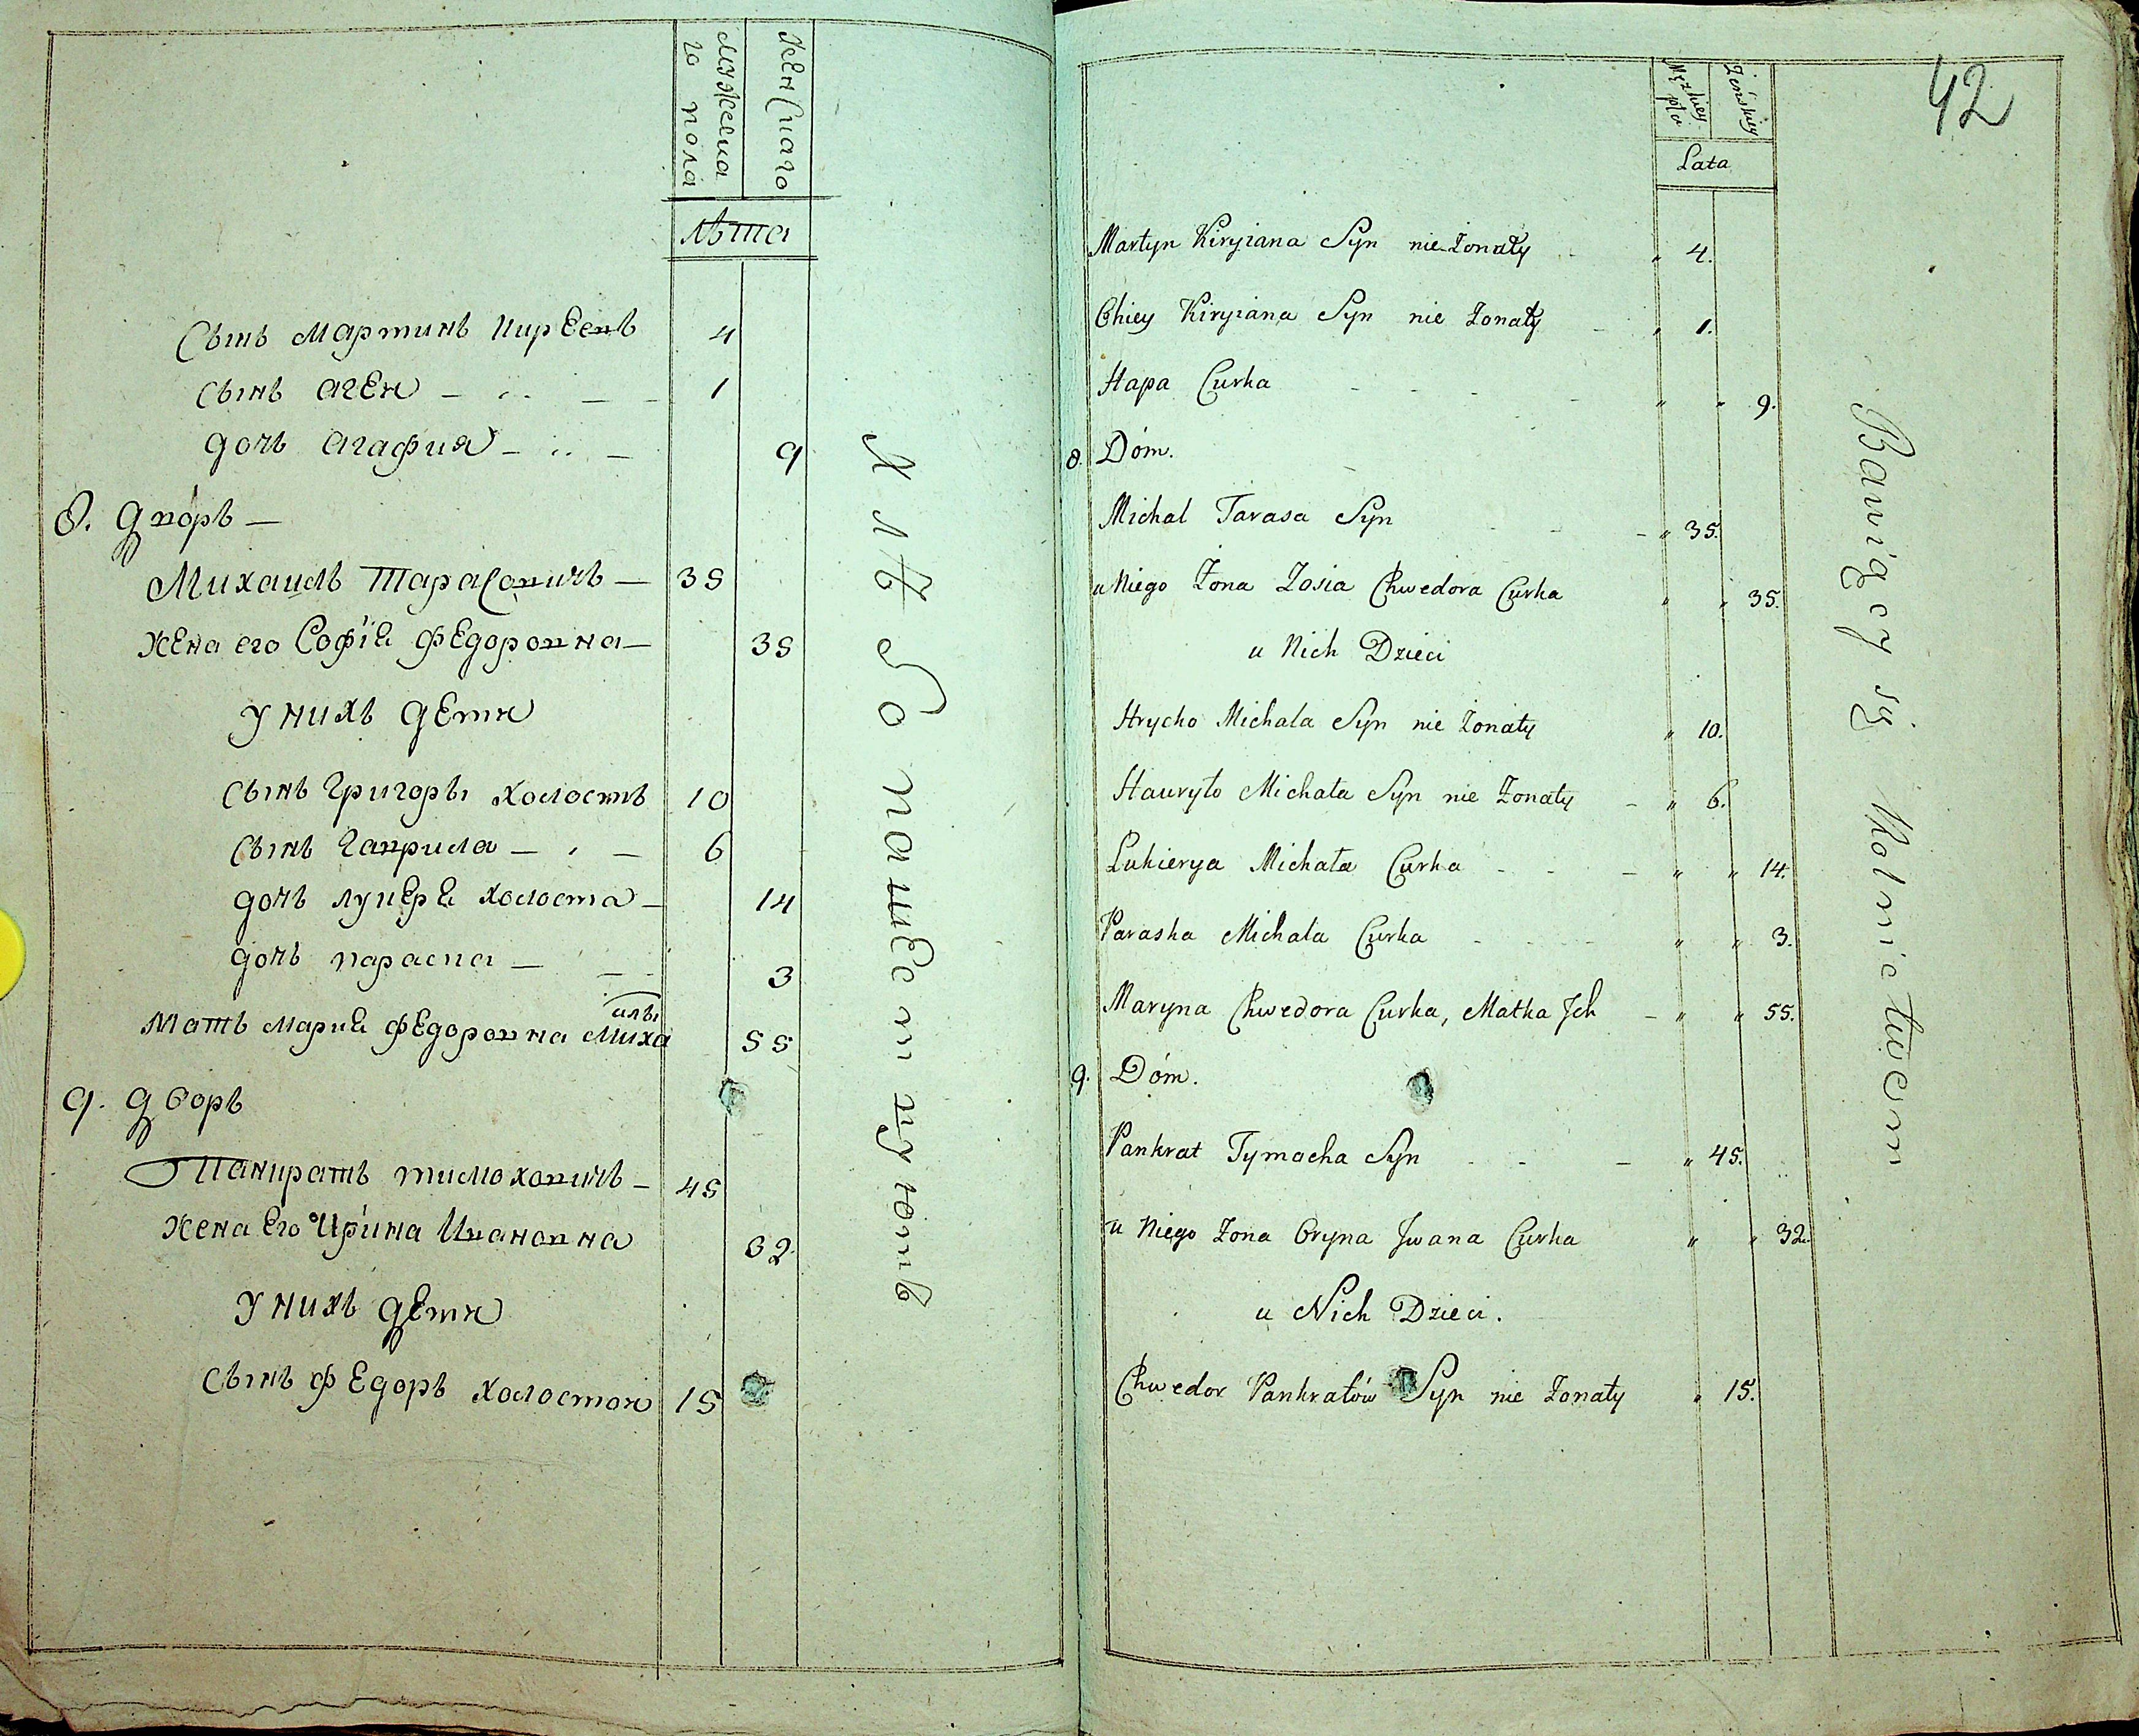 мужска
го пола
женскаго
лѣта
сынъ мартинъ киреевъ 4
сынъ агей — „ — 1
дочь агафия — „ — 9
8. дворъ —
Михаилъ тарасовичъ — 35
жена его Софїя федоровна — 35
у нихъ дети
сынъ григорьı холостъ 10
сынъ гаврила — „ — 6
дочь лукеря холоста — 14
дочь параска — — 3
илы
мать мария федоровна миха 55
9. дворъ
Панкратъ тимоховичъ — 45
жена его Ирина Ивановна 32
у нихъ дети
сынъ федоръ холостой 15
хлѣбопашествуютъ
42
Męzkiey
płci
Zeńskiey
Lata
Martyn Kiryiana Syn nie Żonaty „ 4.
Ohiey Kiryiana Syn nie Żonaty „ 1.
Hapa Curka „ „ 9.
8. Dóm.
Michal Tarasa Syn „ 35.
u Niego Żona Zosia Chwedora Curka „ „ 35.
u Nich Dzieci
Hrycko Michała Syn nie Żonaty „ 10.
Hauryło Michała Syn nie Żonaty „ 6.
Lukierya Michała Curka „ „ 14.
Paraska Michała Curka „ „ 3.
Maryna Chwedora Curka, Matka Jch „ „ 55.
9. Dóm.
Pankrat Tymocha Syn „ 45.
u Niego Żona Oryna Jwana Curka „ „ 32.
u Nich Dzieci.
Chwedor Pankratów Syn nie Żonaty „ 15.
Bawiący się Rolnictwem